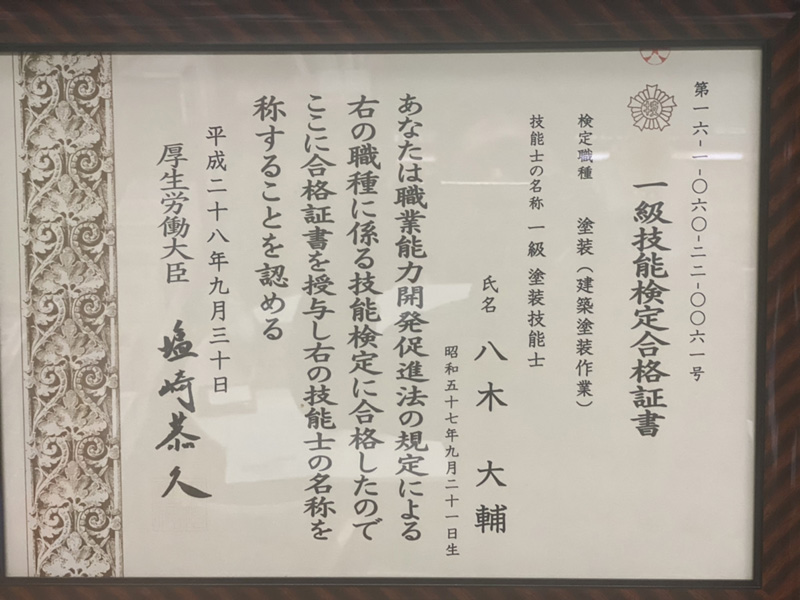 第一六-一-〇六〇-二二-〇〇六一号
一級技能検定合格証書
検定職種 塗装(建築塗装作業)
技能士の名称 一級 塗装技能士
氏名 八木 大輔
昭和五十七年九月二十一日生
あなたは職業能力開発促進法の規定による
右の職種に係る技能検定に合格したので
ここに合格証書を授与し右の技能士の名称を
称することを認める
平成二十八年九月三十日
厚生労働大臣 塩崎恭久